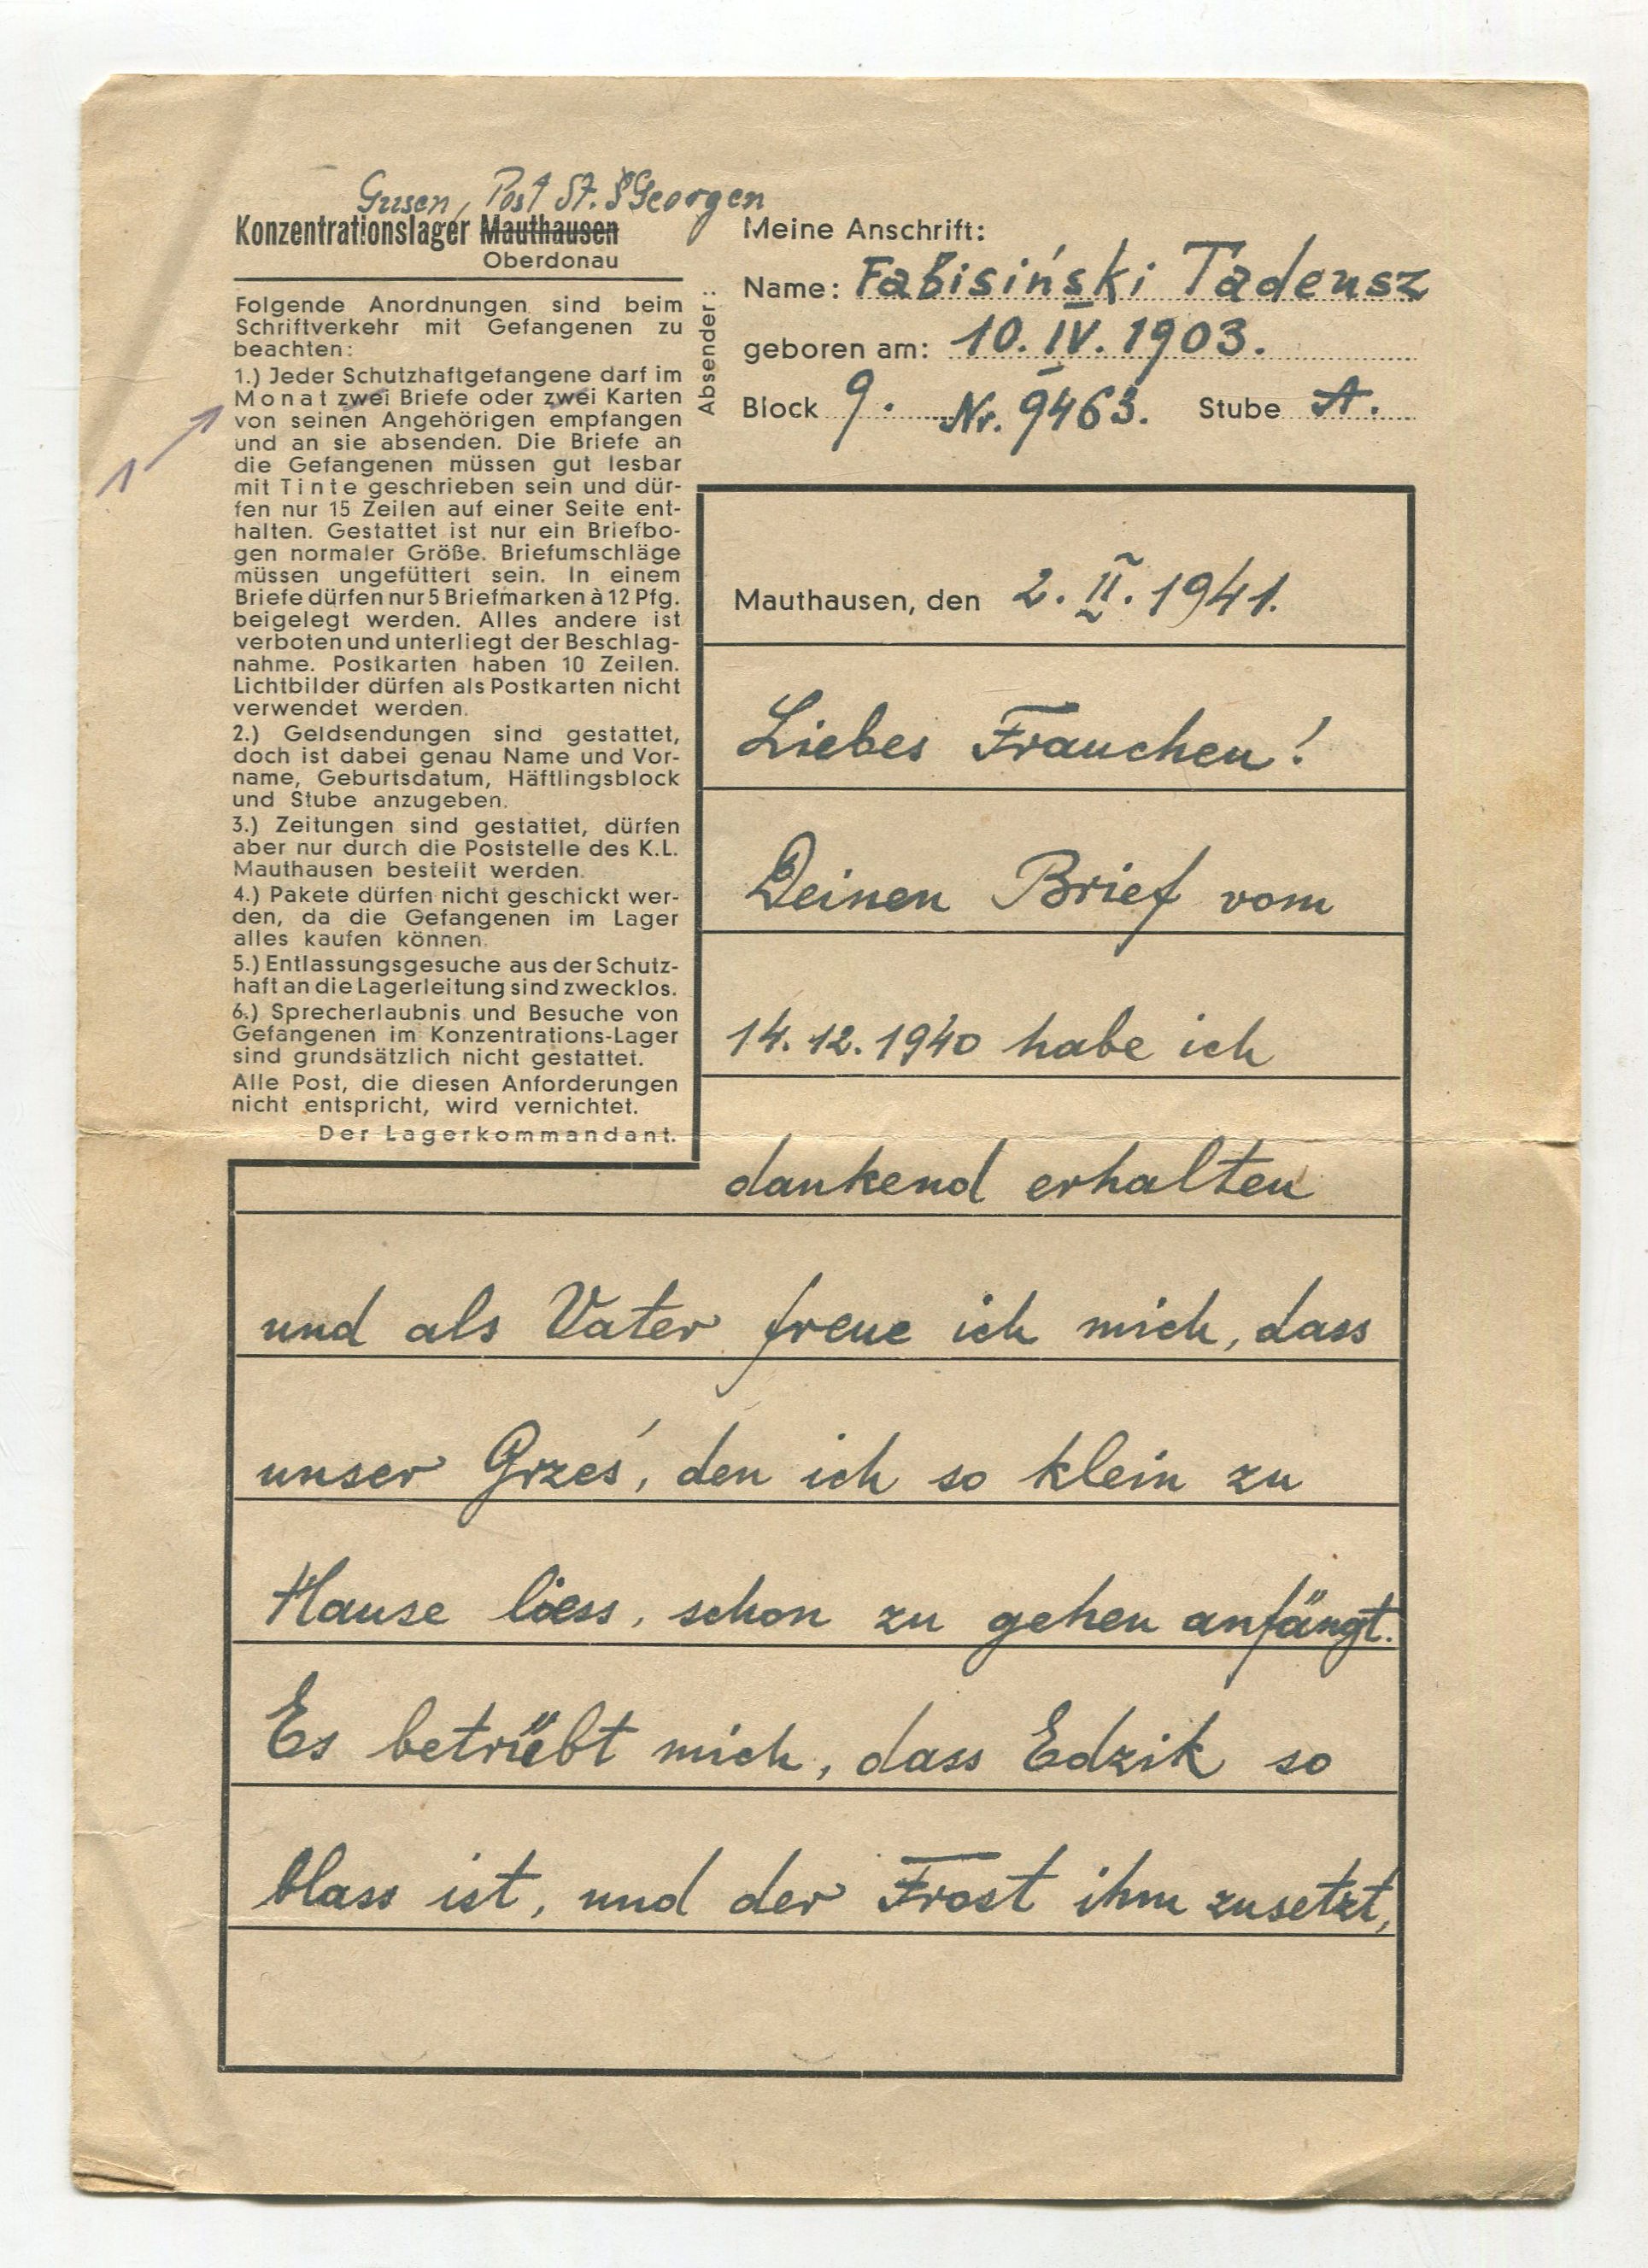 Gusen, Post St. Georgen
Konzentrationslager Mauthausen
Oberdonau
Folgende Anordnungen sind beim
Schriftverkehr mit Gefangenen zu
beachten:
1.) Jeder Schutzhaftgefangene darf im
Monat zwei Briefe oder zwei Karten
von seinen Angehörigen empfangen
und an sie absenden. Die Briefe an
die Gefangenen müssen gut lesbar
mit Tinte geschrieben sein und dür-
fen nur 15 Zeilen auf einer Seite ent-
halten. Gestattet ist nur ein Briefbo-
gen normaler Größe. Briefumschläge
müssen ungefüttert sein. In einem
Briefe dürfen nur 5 Briefmarken à 12 Pfg.
beigelegt werden. Alles andere ist
verboten und unterliegt der Beschlag-
nahme. Postkarten haben 10 Zeilen.
Lichtbilder dürfen als Postkarten nicht
verwendet werden.
2.) Geldsendungen sind gestattet,
doch ist dabei genau Name und Vor-
name, Geburtsdatum, Häftlingsblock
und Stube anzugeben.
3.) Zeitungen sind gestattet, dürfen
aber nur durch die Poststelle des K.L.
Mauthausen bestellt werden.
4.) Pakete dürfen nicht geschickt wer-
den, da die Gefangenen im Lager
alles kaufen können.
5.) Entlassungsgesuche aus der Schutz-
haft an die Lagerleitung sind zwecklos.
6.) Sprecherlaubnis und Besuche von
Gefangenen im Konzentrations-Lager
sind grundsätzlich nicht gestattet.
Alle Post, die diesen Anforderungen
nicht entspricht, wird vernichtet.
Der Lagerkommandant.
1
Absender:
Meine Anschrift:
Name: Fabisiński Tadeusz
geboren am: 10. IV. 1903.
Block 9. Nr. 9463. Stube A.
Mauthausen, den 2. II. 1941.
Liebes Frauchen!
Deinen Brief vom
14. 12. 1940 habe ich
dankend erhalten
und als Vater freue ich mich, dass
unser Grześ, den ich so klein zu
Hause liess, schon zu gehen anfängt.
Es betrübt mich, dass Edzik so
blass ist, und der Frost ihm zusetzt,